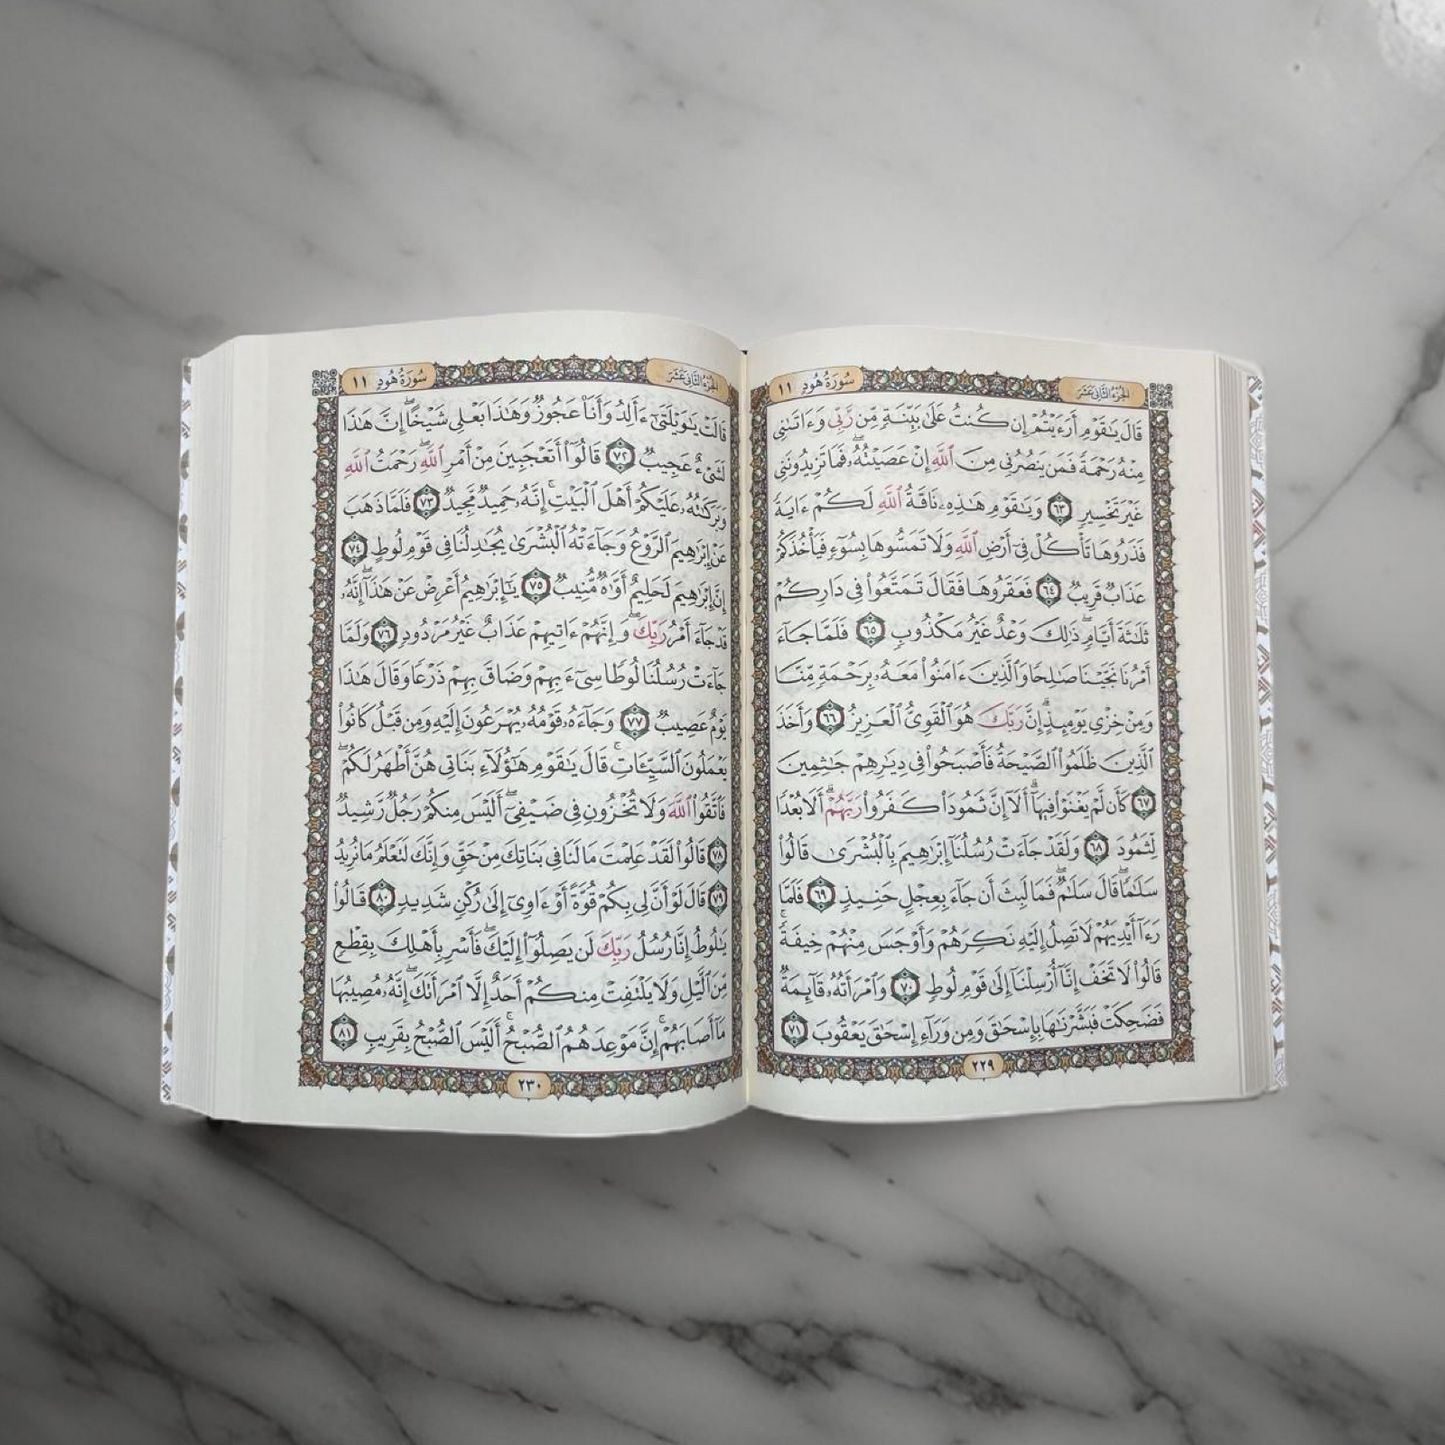 الجزء الثاني عشر
سورة هود ١١
قَالَ يَٰقَوْمِ أَرَءَيْتُمْ إِن كُنتُ عَلَىٰ بَيِّنَةٍ مِّن رَّبِّى وَءَاتَىٰنِى
مِنْهُ رَحْمَةً فَمَن يَنصُرُنِى مِنَ ٱللَّهِ إِنْ عَصَيْتُهُۥۖ فَمَا تَزِيدُونَنِى
غَيْرَ تَخْسِيرٍ ٦٣ وَيَٰقَوْمِ هَٰذِهِۦ نَاقَةُ ٱللَّهِ لَكُمْ ءَايَةً
فَذَرُوهَا تَأْكُلْ فِىٓ أَرْضِ ٱللَّهِ وَلَا تَمَسُّوهَا بِسُوٓءٍ فَيَأْخُذَكُمْ
عَذَابٌ قَرِيبٌ ٦٤ فَعَقَرُوهَا فَقَالَ تَمَتَّعُوا۟ فِى دَارِكُمْ
ثَلَٰثَةَ أَيَّامٍۖ ذَٰلِكَ وَعْدٌ غَيْرُ مَكْذُوبٍ ٦٥ فَلَمَّا جَآءَ
أَمْرُنَا نَجَّيْنَا صَٰلِحًا وَٱلَّذِينَ ءَامَنُوا۟ مَعَهُۥ بِرَحْمَةٍ مِّنَّا
وَمِنْ خِزْىِ يَوْمِئِذٍۗ إِنَّ رَبَّكَ هُوَ ٱلْقَوِىُّ ٱلْعَزِيزُ ٦٦ وَأَخَذَ
ٱلَّذِينَ ظَلَمُوا۟ ٱلصَّيْحَةُ فَأَصْبَحُوا۟ فِى دِيَٰرِهِمْ جَٰثِمِينَ
٦٧ كَأَن لَّمْ يَغْنَوْا۟ فِيهَآۗ أَلَآ إِنَّ ثَمُودَا۟ كَفَرُوا۟ رَبَّهُمْۗ أَلَا بُعْدًا
لِّثَمُودَ ٦٨ وَلَقَدْ جَآءَتْ رُسُلُنَآ إِبْرَٰهِيمَ بِٱلْبُشْرَىٰ قَالُوا۟
سَلَٰمًاۖ قَالَ سَلَٰمٌۖ فَمَا لَبِثَ أَن جَآءَ بِعِجْلٍ حَنِيذٍ ٦٩ فَلَمَّا
رَءَآ أَيْدِيَهُمْ لَا تَصِلُ إِلَيْهِ نَكِرَهُمْ وَأَوْجَسَ مِنْهُمْ خِيفَةًۚ
قَالُوا۟ لَا تَخَفْ إِنَّآ أُرْسِلْنَآ إِلَىٰ قَوْمِ لُوطٍ ٧٠ وَٱمْرَأَتُهُۥ قَآئِمَةٌ
فَضَحِكَتْ فَبَشَّرْنَٰهَا بِإِسْحَٰقَ وَمِن وَرَآءِ إِسْحَٰقَ يَعْقُوبَ ٧١
٢٢٩
الجزء الثاني عشر
سورة هود ١١
قَالَتْ يَٰوَيْلَتَىٰٓ ءَأَلِدُ وَأَنَا۠ عَجُوزٌ وَهَٰذَا بَعْلِى شَيْخًاۖ إِنَّ هَٰذَا
لَشَىْءٌ عَجِيبٌ ٧٢ قَالُوٓا۟ أَتَعْجَبِينَ مِنْ أَمْرِ ٱللَّهِۖ رَحْمَتُ ٱللَّهِ
وَبَرَكَٰتُهُۥ عَلَيْكُمْ أَهْلَ ٱلْبَيْتِۚ إِنَّهُۥ حَمِيدٌ مَّجِيدٌ ٧٣ فَلَمَّا ذَهَبَ
عَنْ إِبْرَٰهِيمَ ٱلرَّوْعُ وَجَآءَتْهُ ٱلْبُشْرَىٰ يُجَٰدِلُنَا فِى قَوْمِ لُوطٍ ٧٤
إِنَّ إِبْرَٰهِيمَ لَحَلِيمٌ أَوَّٰهٌ مُّنِيبٌ ٧٥ يَٰٓإِبْرَٰهِيمُ أَعْرِضْ عَنْ هَٰذَآۖ إِنَّهُۥ
قَدْ جَآءَ أَمْرُ رَبِّكَۖ وَإِنَّهُمْ ءَاتِيهِمْ عَذَابٌ غَيْرُ مَرْدُودٍ ٧٦ وَلَمَّا
جَآءَتْ رُسُلُنَا لُوطًا سِىٓءَ بِهِمْ وَضَاقَ بِهِمْ ذَرْعًا وَقَالَ هَٰذَا
يَوْمٌ عَصِيبٌ ٧٧ وَجَآءَهُۥ قَوْمُهُۥ يُهْرَعُونَ إِلَيْهِ وَمِن قَبْلُ كَانُوا۟
يَعْمَلُونَ ٱلسَّيِّـَٔاتِۚ قَالَ يَٰقَوْمِ هَٰٓؤُلَآءِ بَنَاتِى هُنَّ أَطْهَرُ لَكُمْۖ
فَٱتَّقُوا۟ ٱللَّهَ وَلَا تُخْزُونِ فِى ضَيْفِىٓۖ أَلَيْسَ مِنكُمْ رَجُلٌ رَّشِيدٌ
٧٨ قَالُوا۟ لَقَدْ عَلِمْتَ مَا لَنَا فِى بَنَاتِكَ مِنْ حَقٍّ وَإِنَّكَ لَتَعْلَمُ مَا نُرِيدُ
٧٩ قَالَ لَوْ أَنَّ لِى بِكُمْ قُوَّةً أَوْ ءَاوِىٓ إِلَىٰ رُكْنٍ شَدِيدٍ ٨٠ قَالُوا۟
يَٰلُوطُ إِنَّا رُسُلُ رَبِّكَ لَن يَصِلُوٓا۟ إِلَيْكَۖ فَأَسْرِ بِأَهْلِكَ بِقِطْعٍ
مِّنَ ٱلَّيْلِ وَلَا يَلْتَفِتْ مِنكُمْ أَحَدٌ إِلَّا ٱمْرَأَتَكَۖ إِنَّهُۥ مُصِيبُهَا
مَآ أَصَابَهُمْۚ إِنَّ مَوْعِدَهُمُ ٱلصُّبْحُۚ أَلَيْسَ ٱلصُّبْحُ بِقَرِيبٍ ٨١
٢٣٠